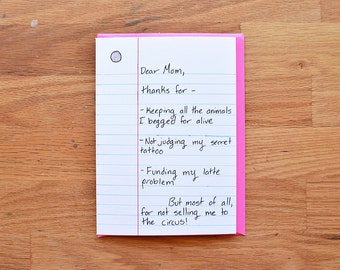 Dear Mom,
thanks for -
- Keeping all the animals
I begged for alive
- Not judging my secret
tattoo
- Funding my latte
problem
But most of all,
for not selling me to
the circus!